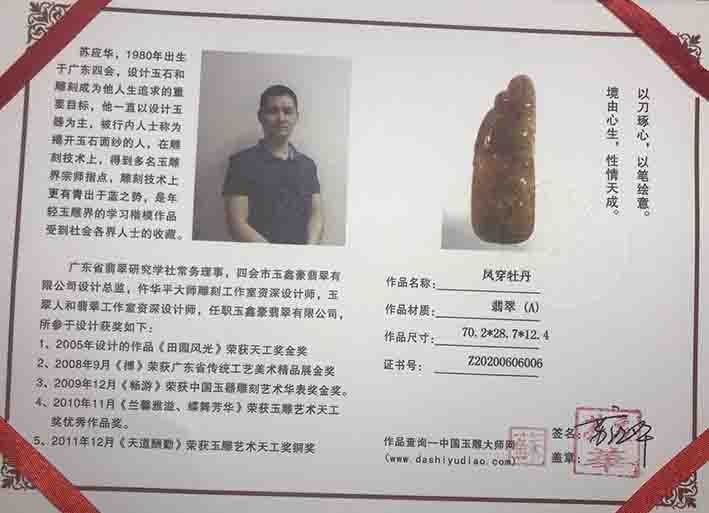 苏应华，1980年出生
于广东四会，设计玉石和
雕刻成为他人生追求的重
要目标，他一直以设计玉
器为主，被行内人士称为
揭开玉石面纱的人，在雕
刻技术上，得到多名玉雕
界宗师指点，雕刻技术上
更有青出于蓝之势，是年
轻玉雕界的学习楷模作品
受到社会各界人士的收藏。
以刀琢心，以笔绘意。
境由心生，性情天成。
广东省翡翠研究学社常务理事，四会市玉鑫豪翡翠有
限公司设计总监，仵华平大师雕刻工作室资深设计师，玉
翠人和翡翠工作室资深设计师，任职玉鑫豪翡翠有限公司，
所参于设计获奖如下：
1、2005年设计的作品《田园风光》荣获天工奖金奖
2、2008年9月《搏》荣获广东省传统工艺美术精品展金奖
3、2009年12月《畅游》荣获中国玉器雕刻艺术华表奖金奖。
4、2010年11月《兰馨雅溢、蝶舞芳华》荣获玉雕艺术天工
奖优秀作品奖。
5、2011年12月《天道酬勤》荣获玉雕艺术天工奖铜奖
作品名称： 风穿牡丹
作品材质： 翡翠（A）
作品尺寸： 70.2*28.7*12.4
证书号： Z20200606006
作品查询—中国玉雕大师网
(www.dashiyudiao.com)
签名：
盖章：
蘇